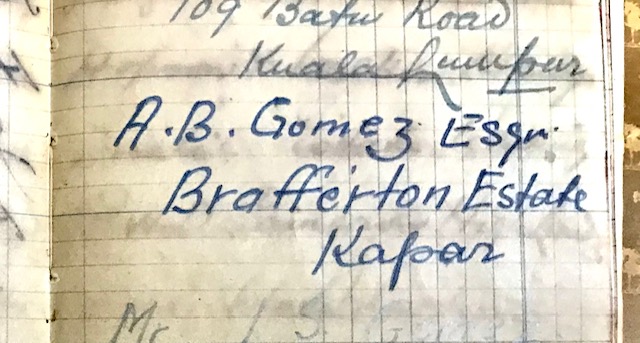 109 Batu Road
Kuala Lumpur
A.B. Gomez Esqr.
Brafferton Estate
Kapar
Mr